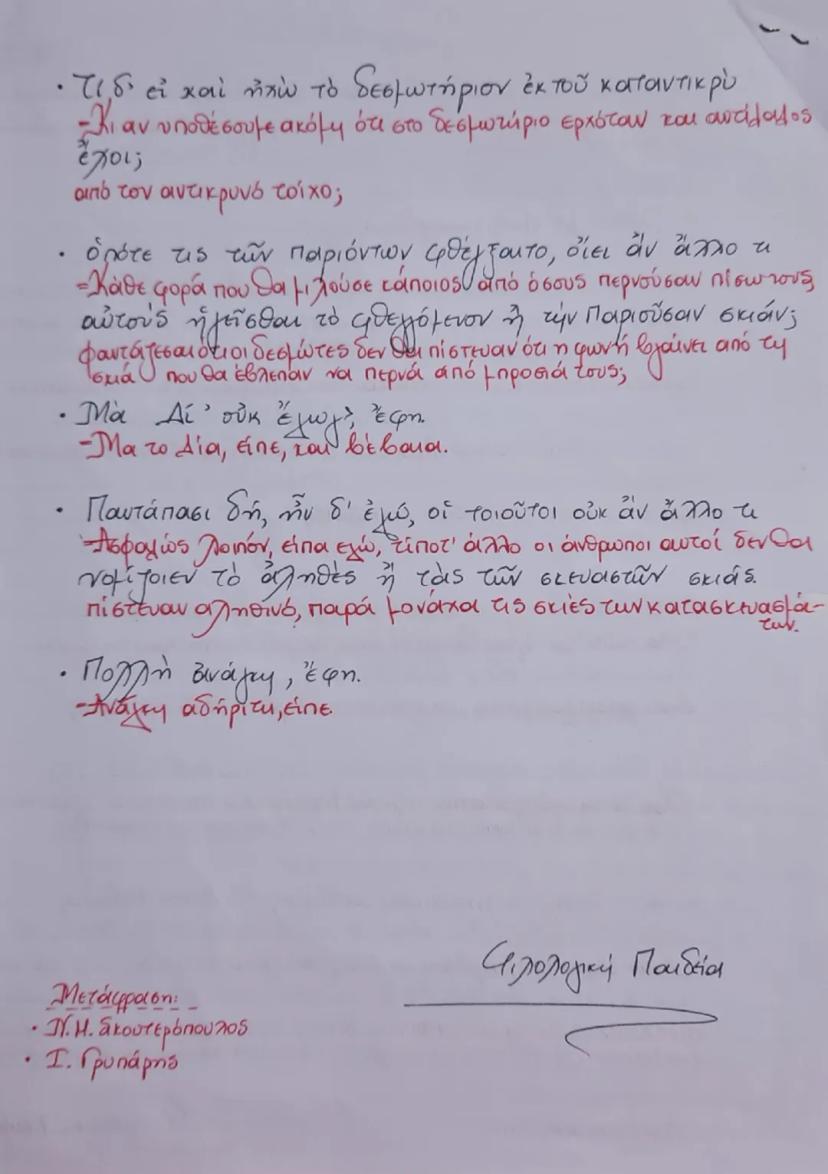 • Τί δ' εἰ καὶ ἠχὼ τὸ δεσμωτήριον ἐκ τοῦ καταντικρὺ
-Κι αν υποθέσουμε ακόμη ότι στο δεσμωτήριο ερχόταν και αντίλαλος
ἔχοι;
από τον αντικρυνό τοίχο;
• ὁπότε τις τῶν παριόντων φθέγξαιτο, οἴει ἂν ἄλλο τι
-Κάθε φορά που θα μιλούσε κάποιος από όσους περνούσαν πίσω τους
αὐτοὺς ἡγεῖσθαι τὸ φθεγγόμενον ἢ τὴν παριοῦσαν σκιάν;
φαντάζεσαι ότι οι δεσμώτες δεν θα πίστευαν ότι η φωνή βγαίνει από τη
σκιά που θα έβλεπαν να περνά από μπροστά τους;
• Μὰ Δί' οὐκ ἔγωγ', ἔφη.
-Μα το Δία, είπε, και βέβαια.
• Παντάπασι δή, ἦν δ' ἐγώ, οἱ τοιοῦτοι οὐκ ἂν ἄλλο τι
-Ασφαλώς λοιπόν, είπα εγώ, τίποτ' άλλο οι άνθρωποι αυτοί δεν θα
νομίζοιεν τὸ ἀληθὲς ἢ τὰς τῶν σκευαστῶν σκιάς.
πίστευαν αληθινό, παρά μονάχα τις σκιές των κατασκευασμά-
των.
• Πολλὴ ἀνάγκη, ἔφη.
-Ανάγκη αδήριτη, είπε.
Φιλολογική Παιδεία
Μετάφραση:
• Ν.Μ. Σκουτερόπουλος
• Ι. Γρυπάρης